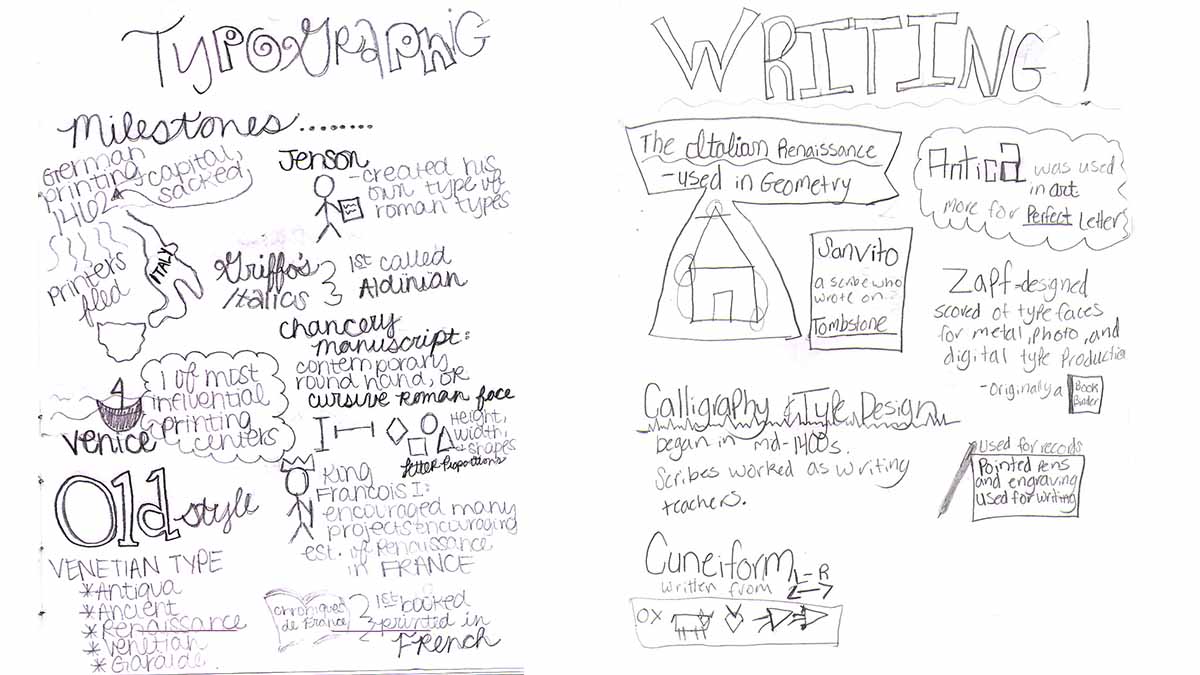 Typographic
Milestones........
German
printing
capital,
1462
sacked
Printers
fled
ITALY
Venice
1 of most
influential
printing
centers
Old style
VENETIAN TYPE
*Antiqua
*Ancient
*Renaissance
*Venetian
*Garalde
Jenson
-created his
own type of
roman types
Griffo's
Italics
1st called
Aldinian
chancery
manuscript:
contemporary
round hand, OR
cursive Roman face
Height,
width,
+ shapes
letter proportions
King
Francois I:
encouraged many
projects encouraging
est. of Renaissance
in FRANCE
Chroniques
de France
1st booked
printed in
French
WRITING!
The Italian Renaissance
-used in Geometry
Antica was used
in art
more for Perfect Letters
Sanvito
a scribe who
wrote on
Tombstone
Zapf-designed
scored of type faces
for metal, photo, and
digital type Production
-originally a Book
Binder
Calligraphy & Type Design
began in mid-1400s.
Scribes worked as writing
teachers.
Used for records
Pointed pens
and engraving
used for writing
Cuneiform
written from L-R
OX